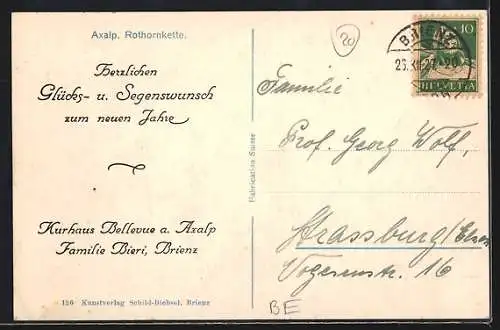 Axalp. Rothornkette.
Herzlichen
Glücks- u. Segenswunsch
zum neuen Jahre
Kurhaus Bellevue a. Axalp
Familie Bieri, Brienz
126 Kunstverlag Schild-Bichsel, Brienz
Fabrication Suisse
20
10
HELVETIA
BRIENZ
Familie
Prof. Georg Wolf,
Strassburg/Elsass
Vogesenstr. 16
BE